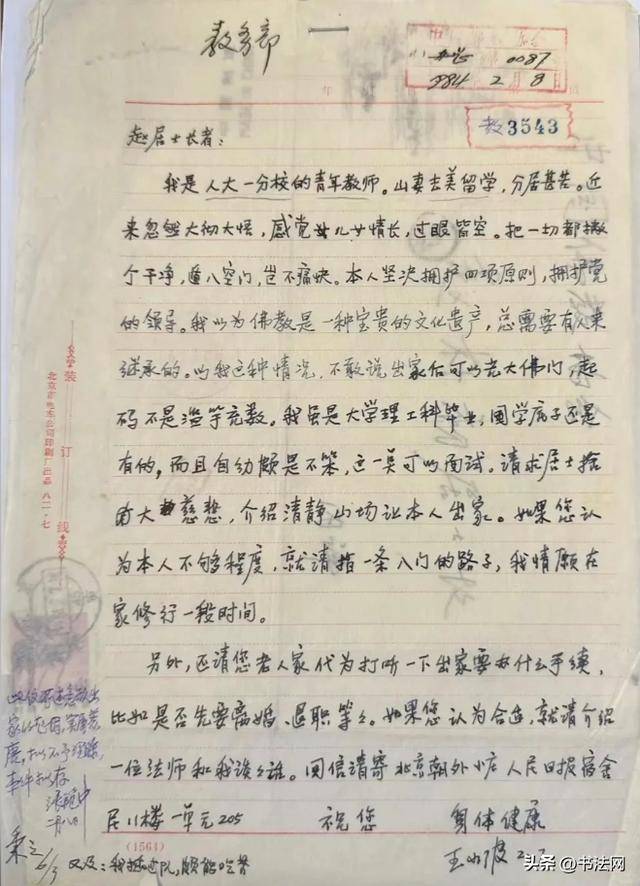 教务部
0087
1984 2月8日
教3543
赵居士长者：
我是人大一分校的青年教师。山妻去美留学，分居甚苦。近
来忽然大彻大悟，感觉儿女情长，过眼皆空。把一切都撇
个干净，遁入空门，岂不痛快。本人坚决拥护四项原则，拥护党
的领导。我以为佛教是一种宝贵的文化遗产，总需要有人来
继承的。以我这种情况，不敢说出家后可以光大佛门，起
码不是滥竽充数。我虽是大学理工科毕业，国学底子还是
有的，而且自幼颇是不笨，这一点可以面试。请求居士施
大慈悲，介绍清静山场让本人出家。如果您认
为本人不够程度，就请指一条入门的路子，我情愿在
家修行一段时间。
另外，还请您老人家代为打听一下出家要办什么手续，
比如是否先要离婚、退职等等。如果您认为合适，就请介绍
一位法师和我谈谈。回信请寄北京朝外小庄人民日报宿舍
民11楼一单元205 祝您 身体健康
王小波 2.7
又及：我插过队，颇能吃苦
(1564)
装订线
北京市电车公司印刷厂出品 八二·七
二月八日
6/3
头条 @书法网